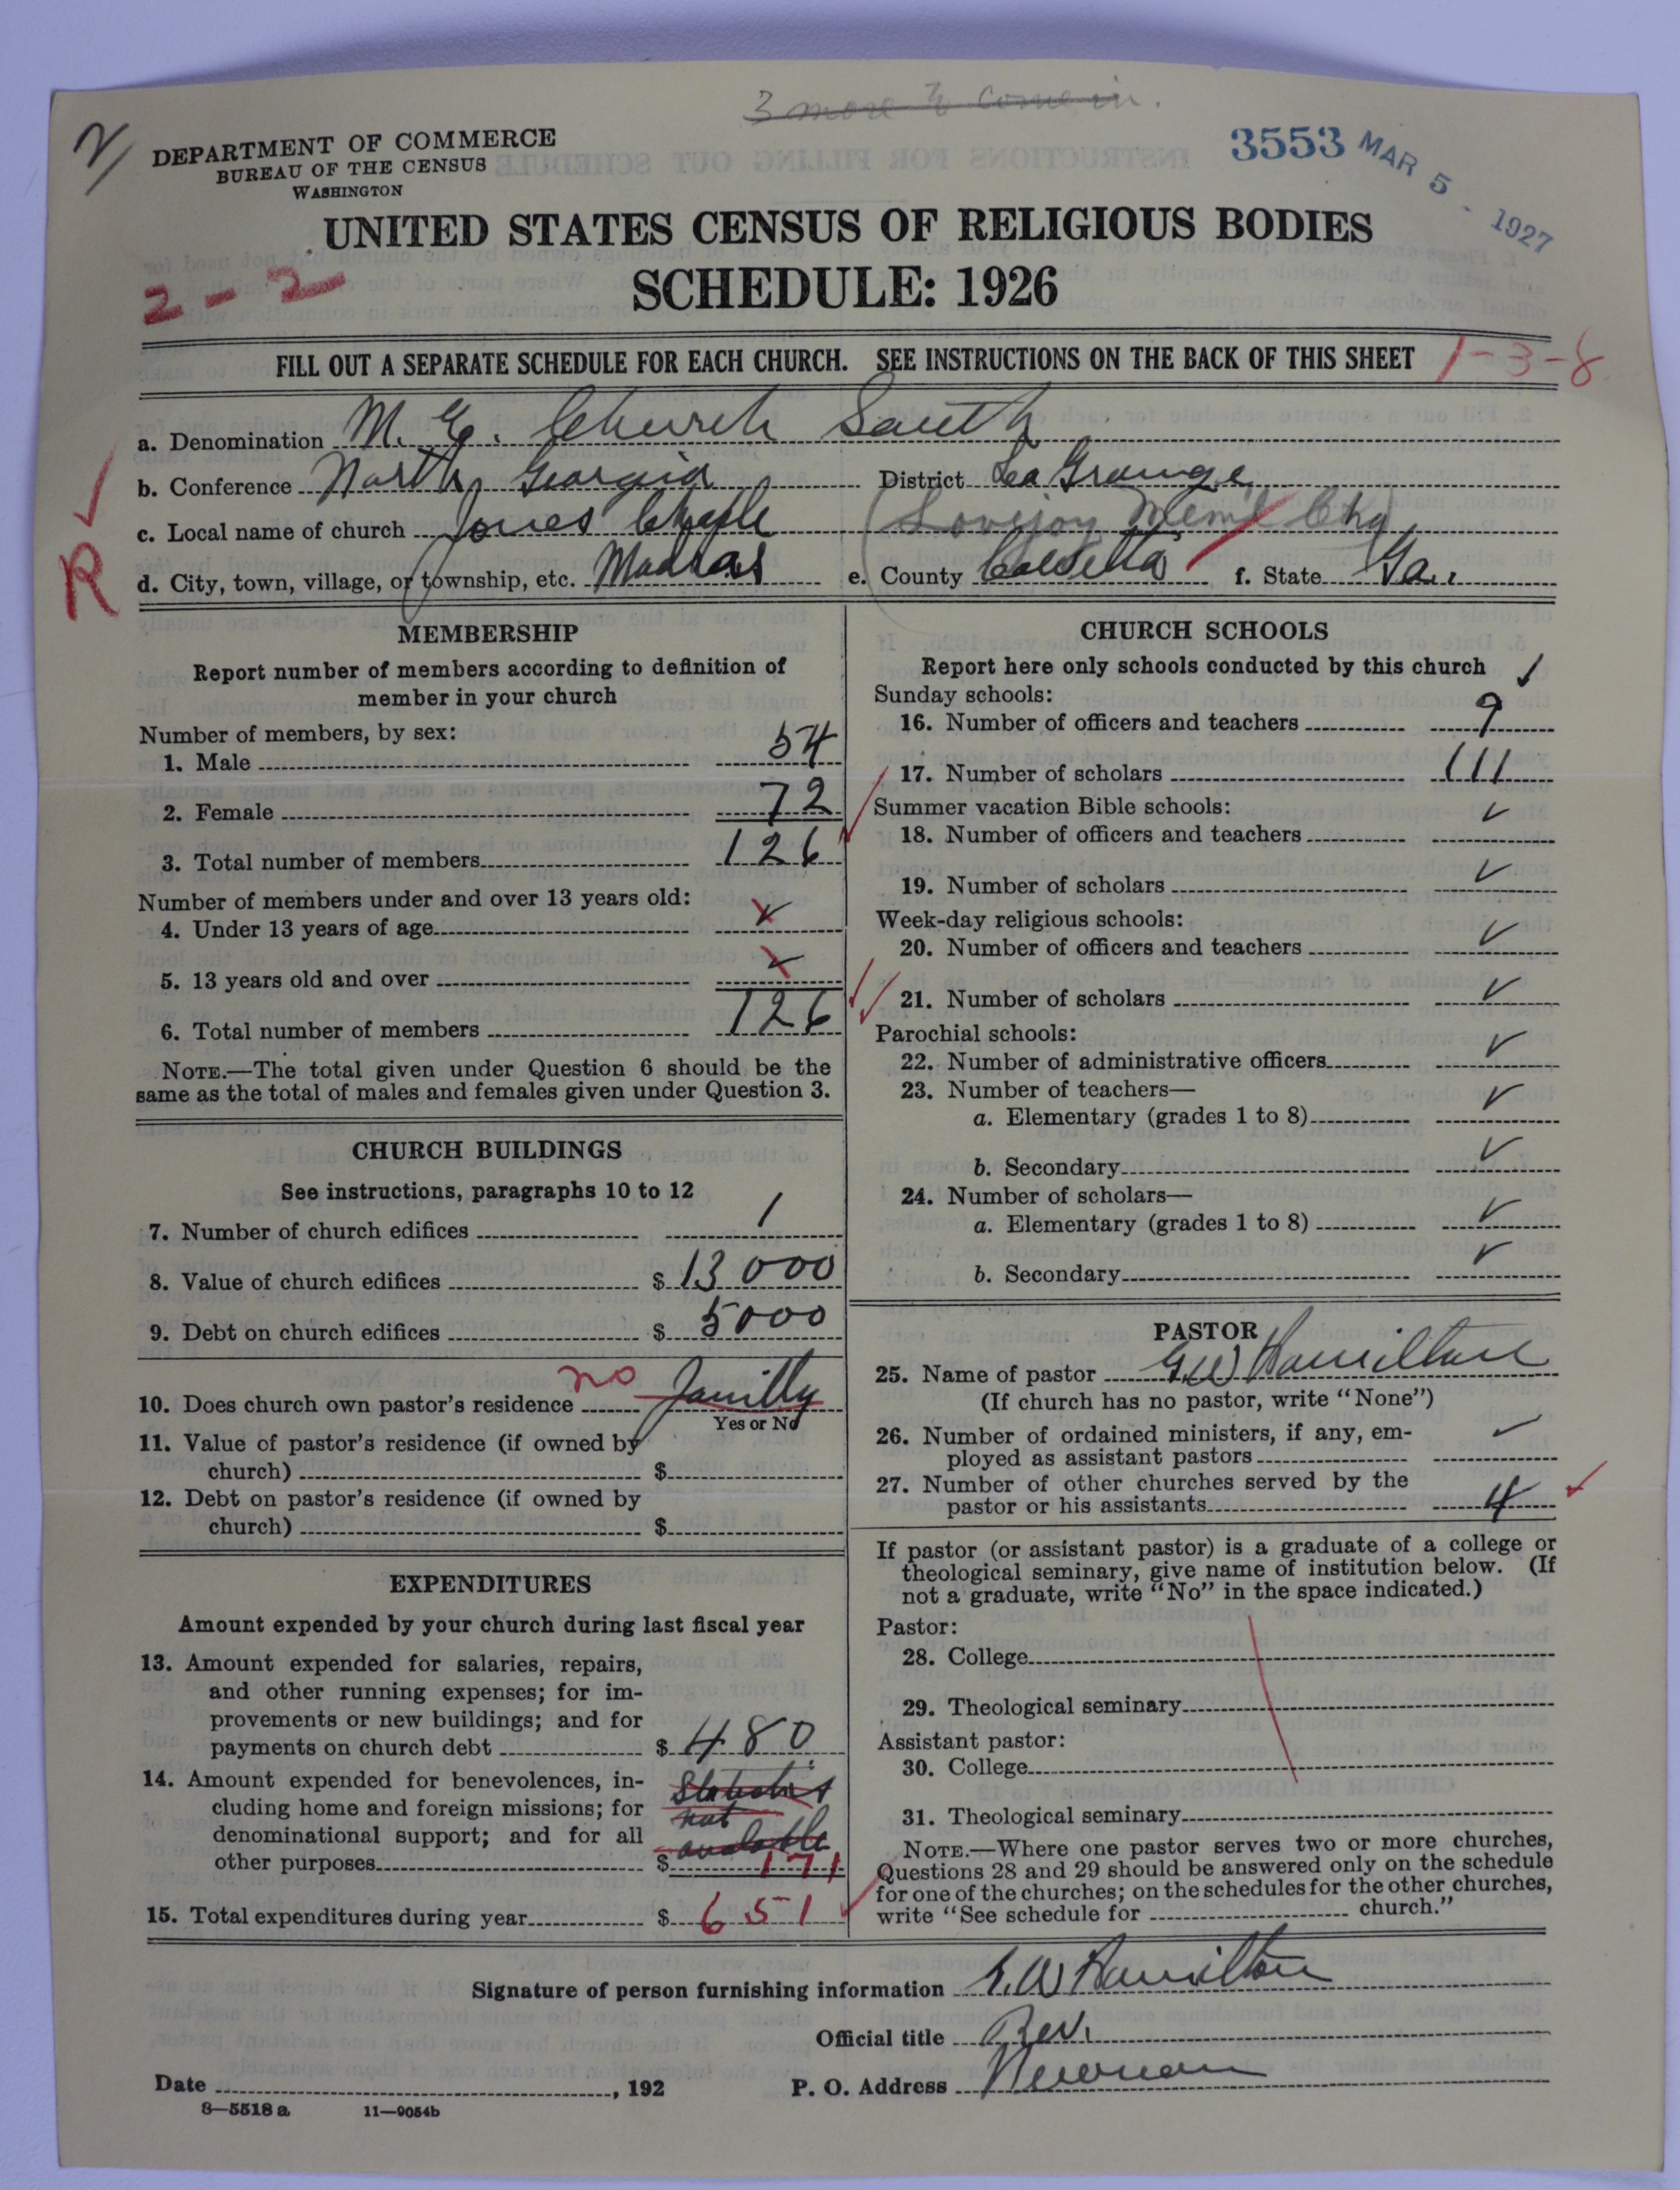 3 more to come in.
2/
DEPARTMENT OF COMMERCE
BUREAU OF THE CENSUS
WASHINGTON
3553 MAR 5 - 1927
UNITED STATES CENSUS OF RELIGIOUS BODIES
2-2
SCHEDULE: 1926
FILL OUT A SEPARATE SCHEDULE FOR EACH CHURCH. SEE INSTRUCTIONS ON THE BACK OF THIS SHEET 1-3-8
a. Denomination M. E. Church South
b. Conference North Georgia District La Grange
c. Local name of church Jones Chaple (Lovejoy Mem'l Chg)
R
d. City, town, village, or township, etc. Madras e. County Coweta f. State Ga.
MEMBERSHIP
Report number of members according to definition of
member in your church
Number of members, by sex:
1. Male 54
2. Female 72
3. Total number of members 126
Number of members under and over 13 years old:
4. Under 13 years of age
5. 13 years old and over
6. Total number of members 126
NOTE.—The total given under Question 6 should be the
same as the total of males and females given under Question 3.
CHURCH BUILDINGS
See instructions, paragraphs 10 to 12
7. Number of church edifices 1
8. Value of church edifices $ 13 000
9. Debt on church edifices $ 5000
10. Does church own pastor's residence no
Yes or No
11. Value of pastor's residence (if owned by
church) $
12. Debt on pastor's residence (if owned by
church) $
EXPENDITURES
Amount expended by your church during last fiscal year
13. Amount expended for salaries, repairs,
and other running expenses; for im-
provements or new buildings; and for
payments on church debt $ 480
14. Amount expended for benevolences, in-
cluding home and foreign missions; for not
denominational support; and for all available
other purposes $ 171
15. Total expenditures during year $ 651
CHURCH SCHOOLS
Report here only schools conducted by this church ✓
Sunday schools:
16. Number of officers and teachers 9
17. Number of scholars 111
Summer vacation Bible schools:
18. Number of officers and teachers ✓
19. Number of scholars ✓
Week-day religious schools:
20. Number of officers and teachers ✓
21. Number of scholars ✓
Parochial schools:
22. Number of administrative officers ✓
23. Number of teachers—
a. Elementary (grades 1 to 8) ✓
b. Secondary ✓
24. Number of scholars—
a. Elementary (grades 1 to 8) ✓
b. Secondary ✓
PASTOR
25. Name of pastor G.W Hamilton
(If church has no pastor, write "None")
26. Number of ordained ministers, if any, em-
ployed as assistant pastors ✓
27. Number of other churches served by the
pastor or his assistants 4 ✓
If pastor (or assistant pastor) is a graduate of a college or
theological seminary, give name of institution below. (If
not a graduate, write "No" in the space indicated.)
Pastor:
28. College
29. Theological seminary
Assistant pastor:
30. College
31. Theological seminary
NOTE.—Where one pastor serves two or more churches,
Questions 28 and 29 should be answered only on the schedule
for one of the churches; on the schedules for the other churches,
write "See schedule for church."
Signature of person furnishing information G.W Hamilton
Official title Rev.
Date , 192 P. O. Address Newnan
8—5518 a 11—9054b